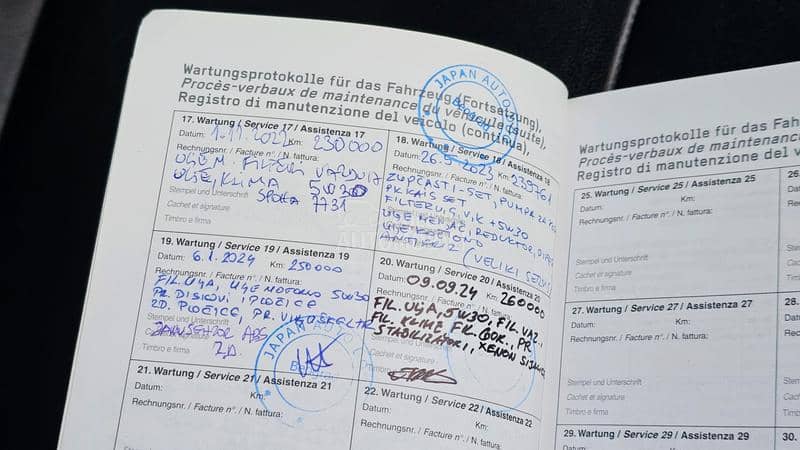 Wartungsprotokolle für das Fahrzeug (Fortsetzung),
Procès-verbaux de maintenance du véhicule (suite),
Registro di manutenzione del veicolo (continua),
JAPAN AUTO
17. Wartung / Service 17 / Assistenza 17
Datum: 1.11.2022 Km: 230000
Rechnungsnr. / Facture n°. / N. fattura:
ULJE M. FILTER VAZDUHA
ULJE, KLIMA 5W30
Stempel und Unterschrift
Cachet et signature
Timbro e firma
18. Wartung / Service 18 / Assistenza 18
Datum: 26.5.2023 Km: 239761
Rechnungsnr. / Facture n°. / N. fattura:
ZUPČASTI-SET, PUMPA
PK KAIŠ SET
FILTERI U, G, V, K + 5W30
ULJE MENJAČ, REDUKTOR, DIFER.
ULJE KOČIONO
ANTIFRIZ (VELIKI SERVIS)
19. Wartung / Service 19 / Assistenza 19
Datum: 6.1.2024 Km: 250000
Rechnungsnr. / Facture n°. / N. fattura:
FIL. ULJA, ULJE MOTORNO 5W30
PR. DISKOVI I PLOČICE
ZD. PLOČICE, PR.
Stempel und Unterschrift
SENZOR ABS
Timbro e firma
ZD.
JAPAN AUTO
20. Wartung / Service 20 / Assistenza 20
Datum: 09.09.24 Km: 260000
Rechnungsnr. / Facture n°. / N. fattura:
FIL. ULJA, 5W30, FIL. VAZ.,
FIL. KLIME FIL. GOR., PR.
STABILIZATORI, XENON
21. Wartung / Service 21 / Assistenza 21
Datum: Km:
Rechnungsnr. / Facture n°. / N. fattura:
22. Wartung / Service 22 / Assistenza 22
Datum: Km:
Rechnungsnr. / Facture n°. / N. fattura:
Wartungsprotokolle für das Fahr
Procès-verbaux de maintenance
Registro di manutenzione del v
25. Wartung / Service 25 / Assistenza 25
Datum: Km:
Rechnungsnr. / Facture n°. / N. fattura:
Stempel und Unterschrift
Cachet et signature
Timbro e firma
26.
27. Wartung / Service 27 / Assistenza 27
Datum: Km:
Rechnungsnr. / Facture n°. / N. fattura:
Stempel und Unterschrift
Cachet et signature
Timbro e firma
29. Wartung / Service 29 / Assistenza 29
Datum: Km:
Rechnungsnr. / Facture n°. / N. fattura:
30.